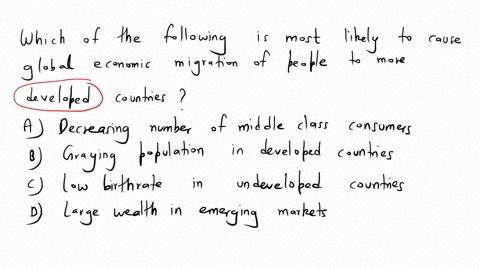 Which of the following is most likely to cause
global economic migration of people to more
developed countries ?
A) Decreasing number of middle class consumers
B) Graying population in developed countries
C) low birthrate in undeveloped countries
D) Large wealth in emerging markets